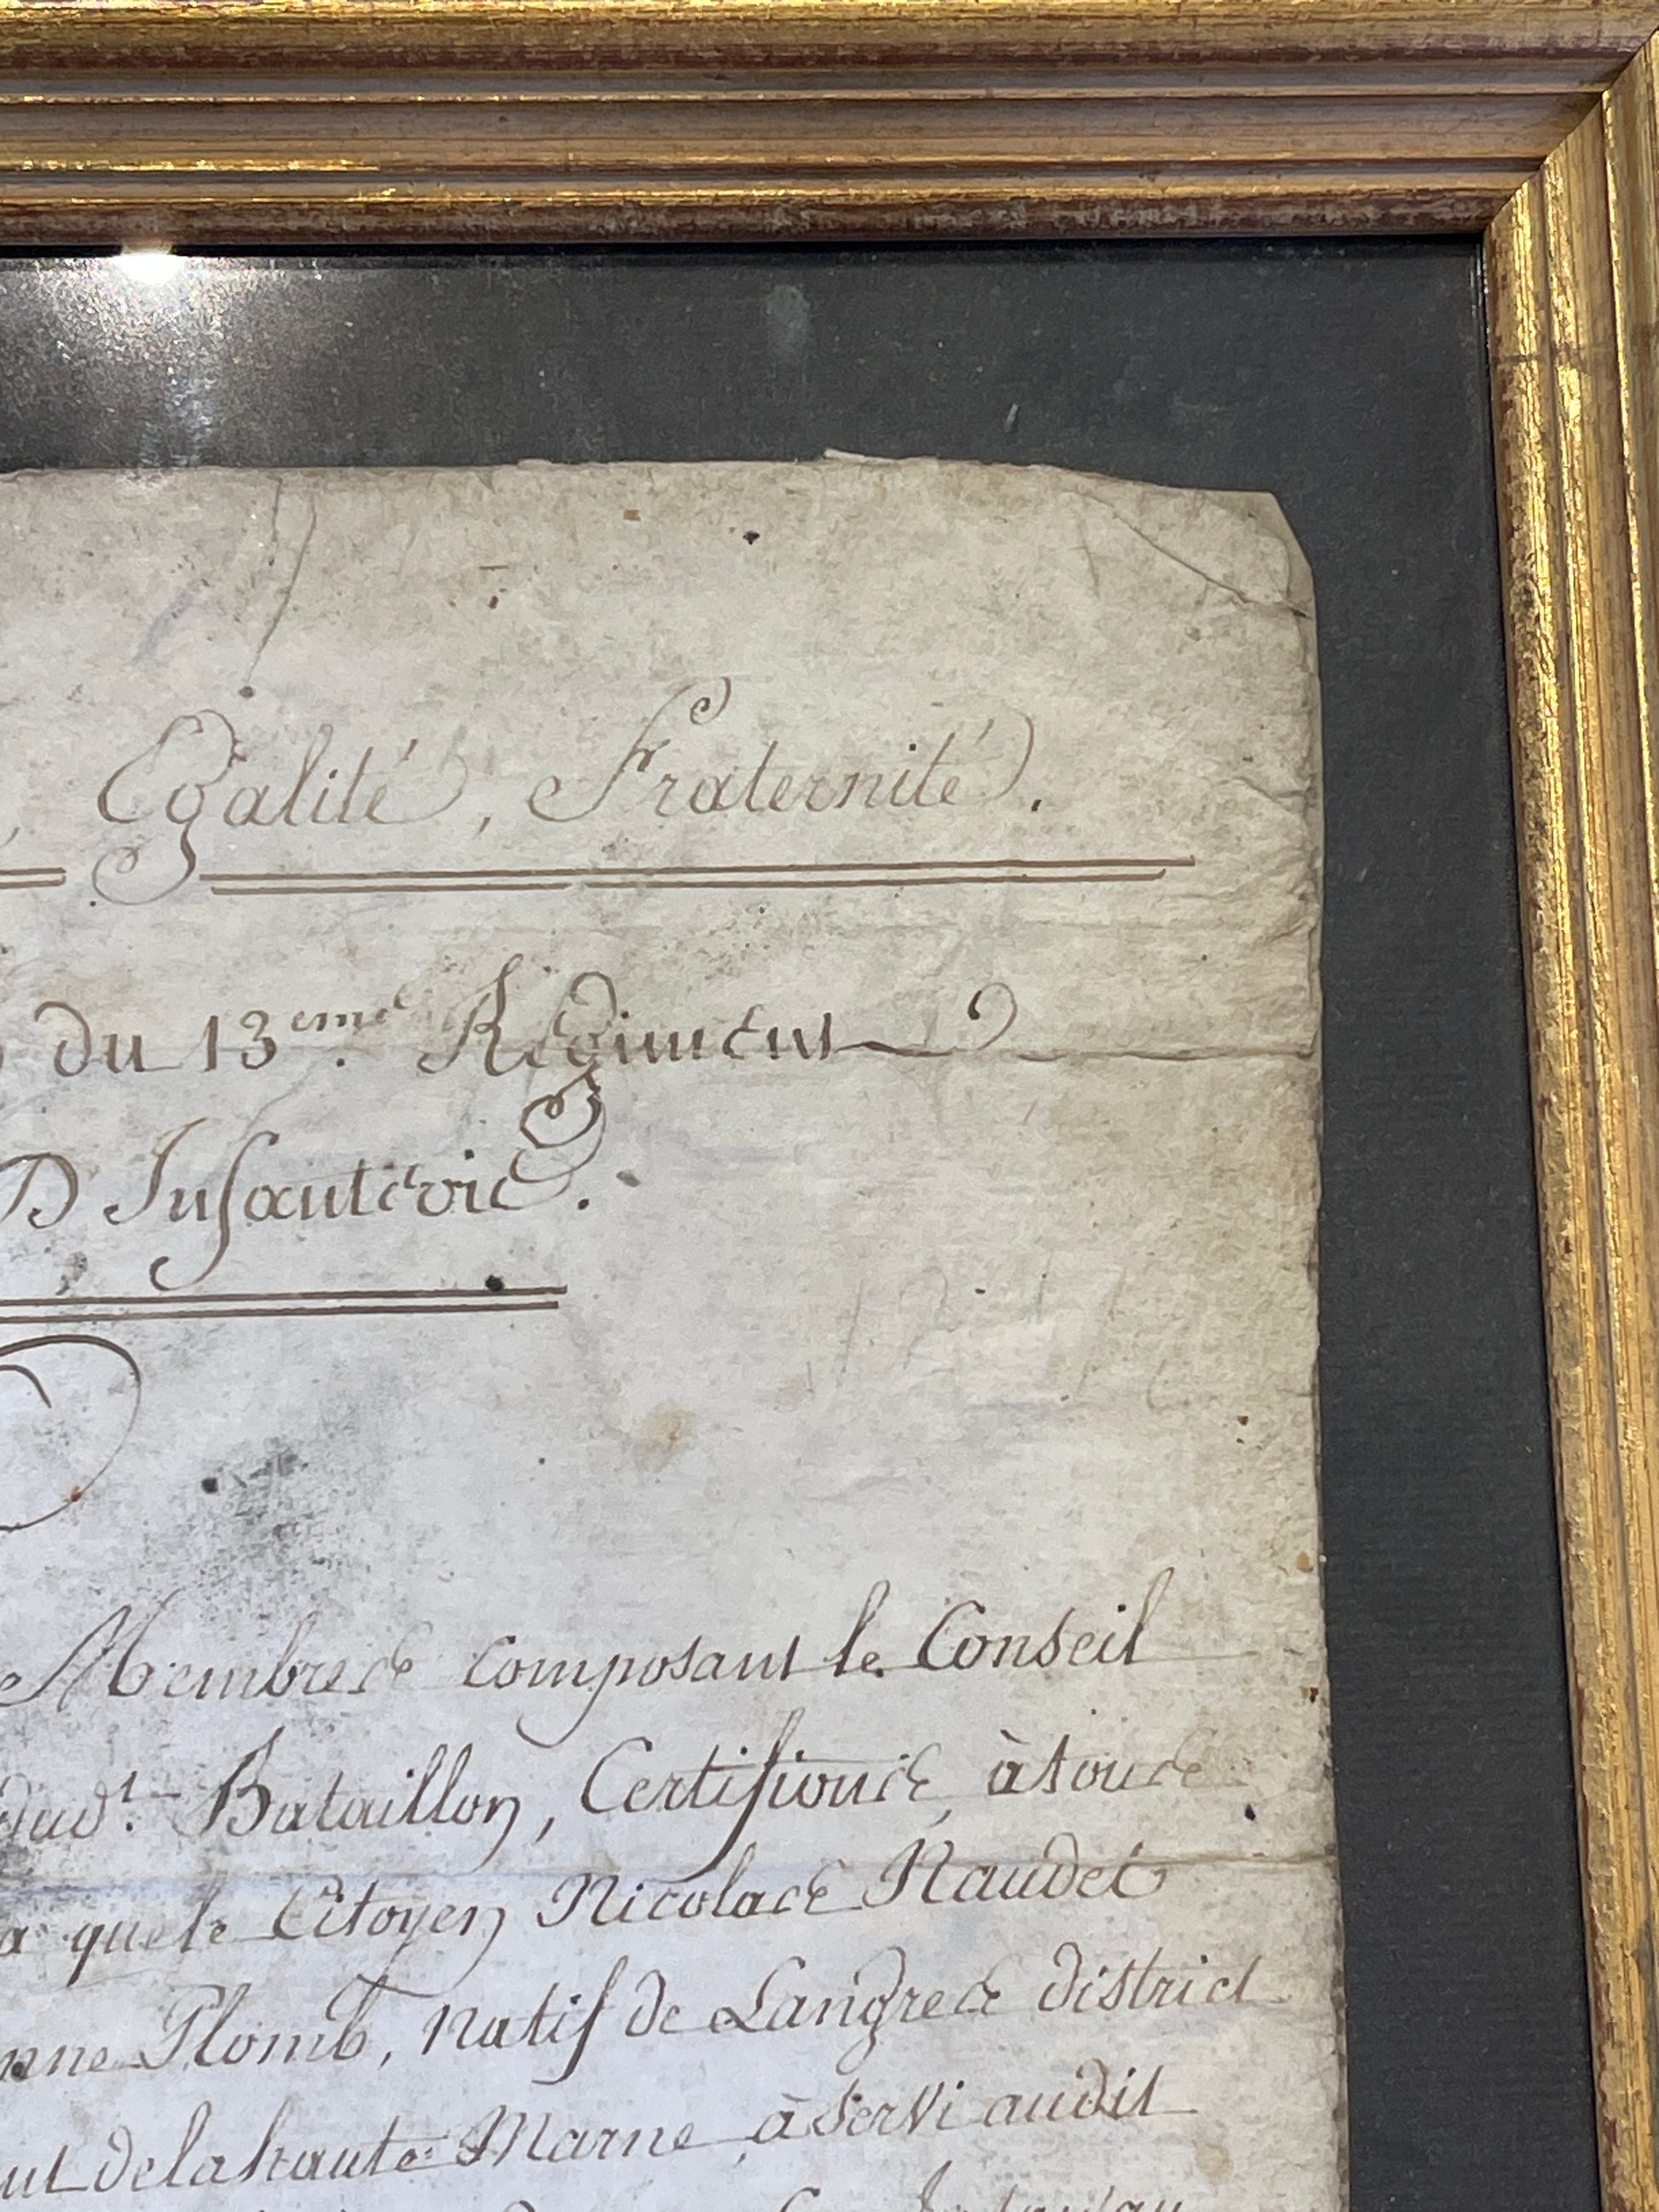 , Egalité, Fraternité.
du 13eme. Régiment
D Infanterie.
Membres composant le Conseil
dud.t Bataillon, Certifions, à tous
que le Citoyen Nicolas Naudet
nne Plomb, natif de Langres district
delahaute Marne, à servi audit